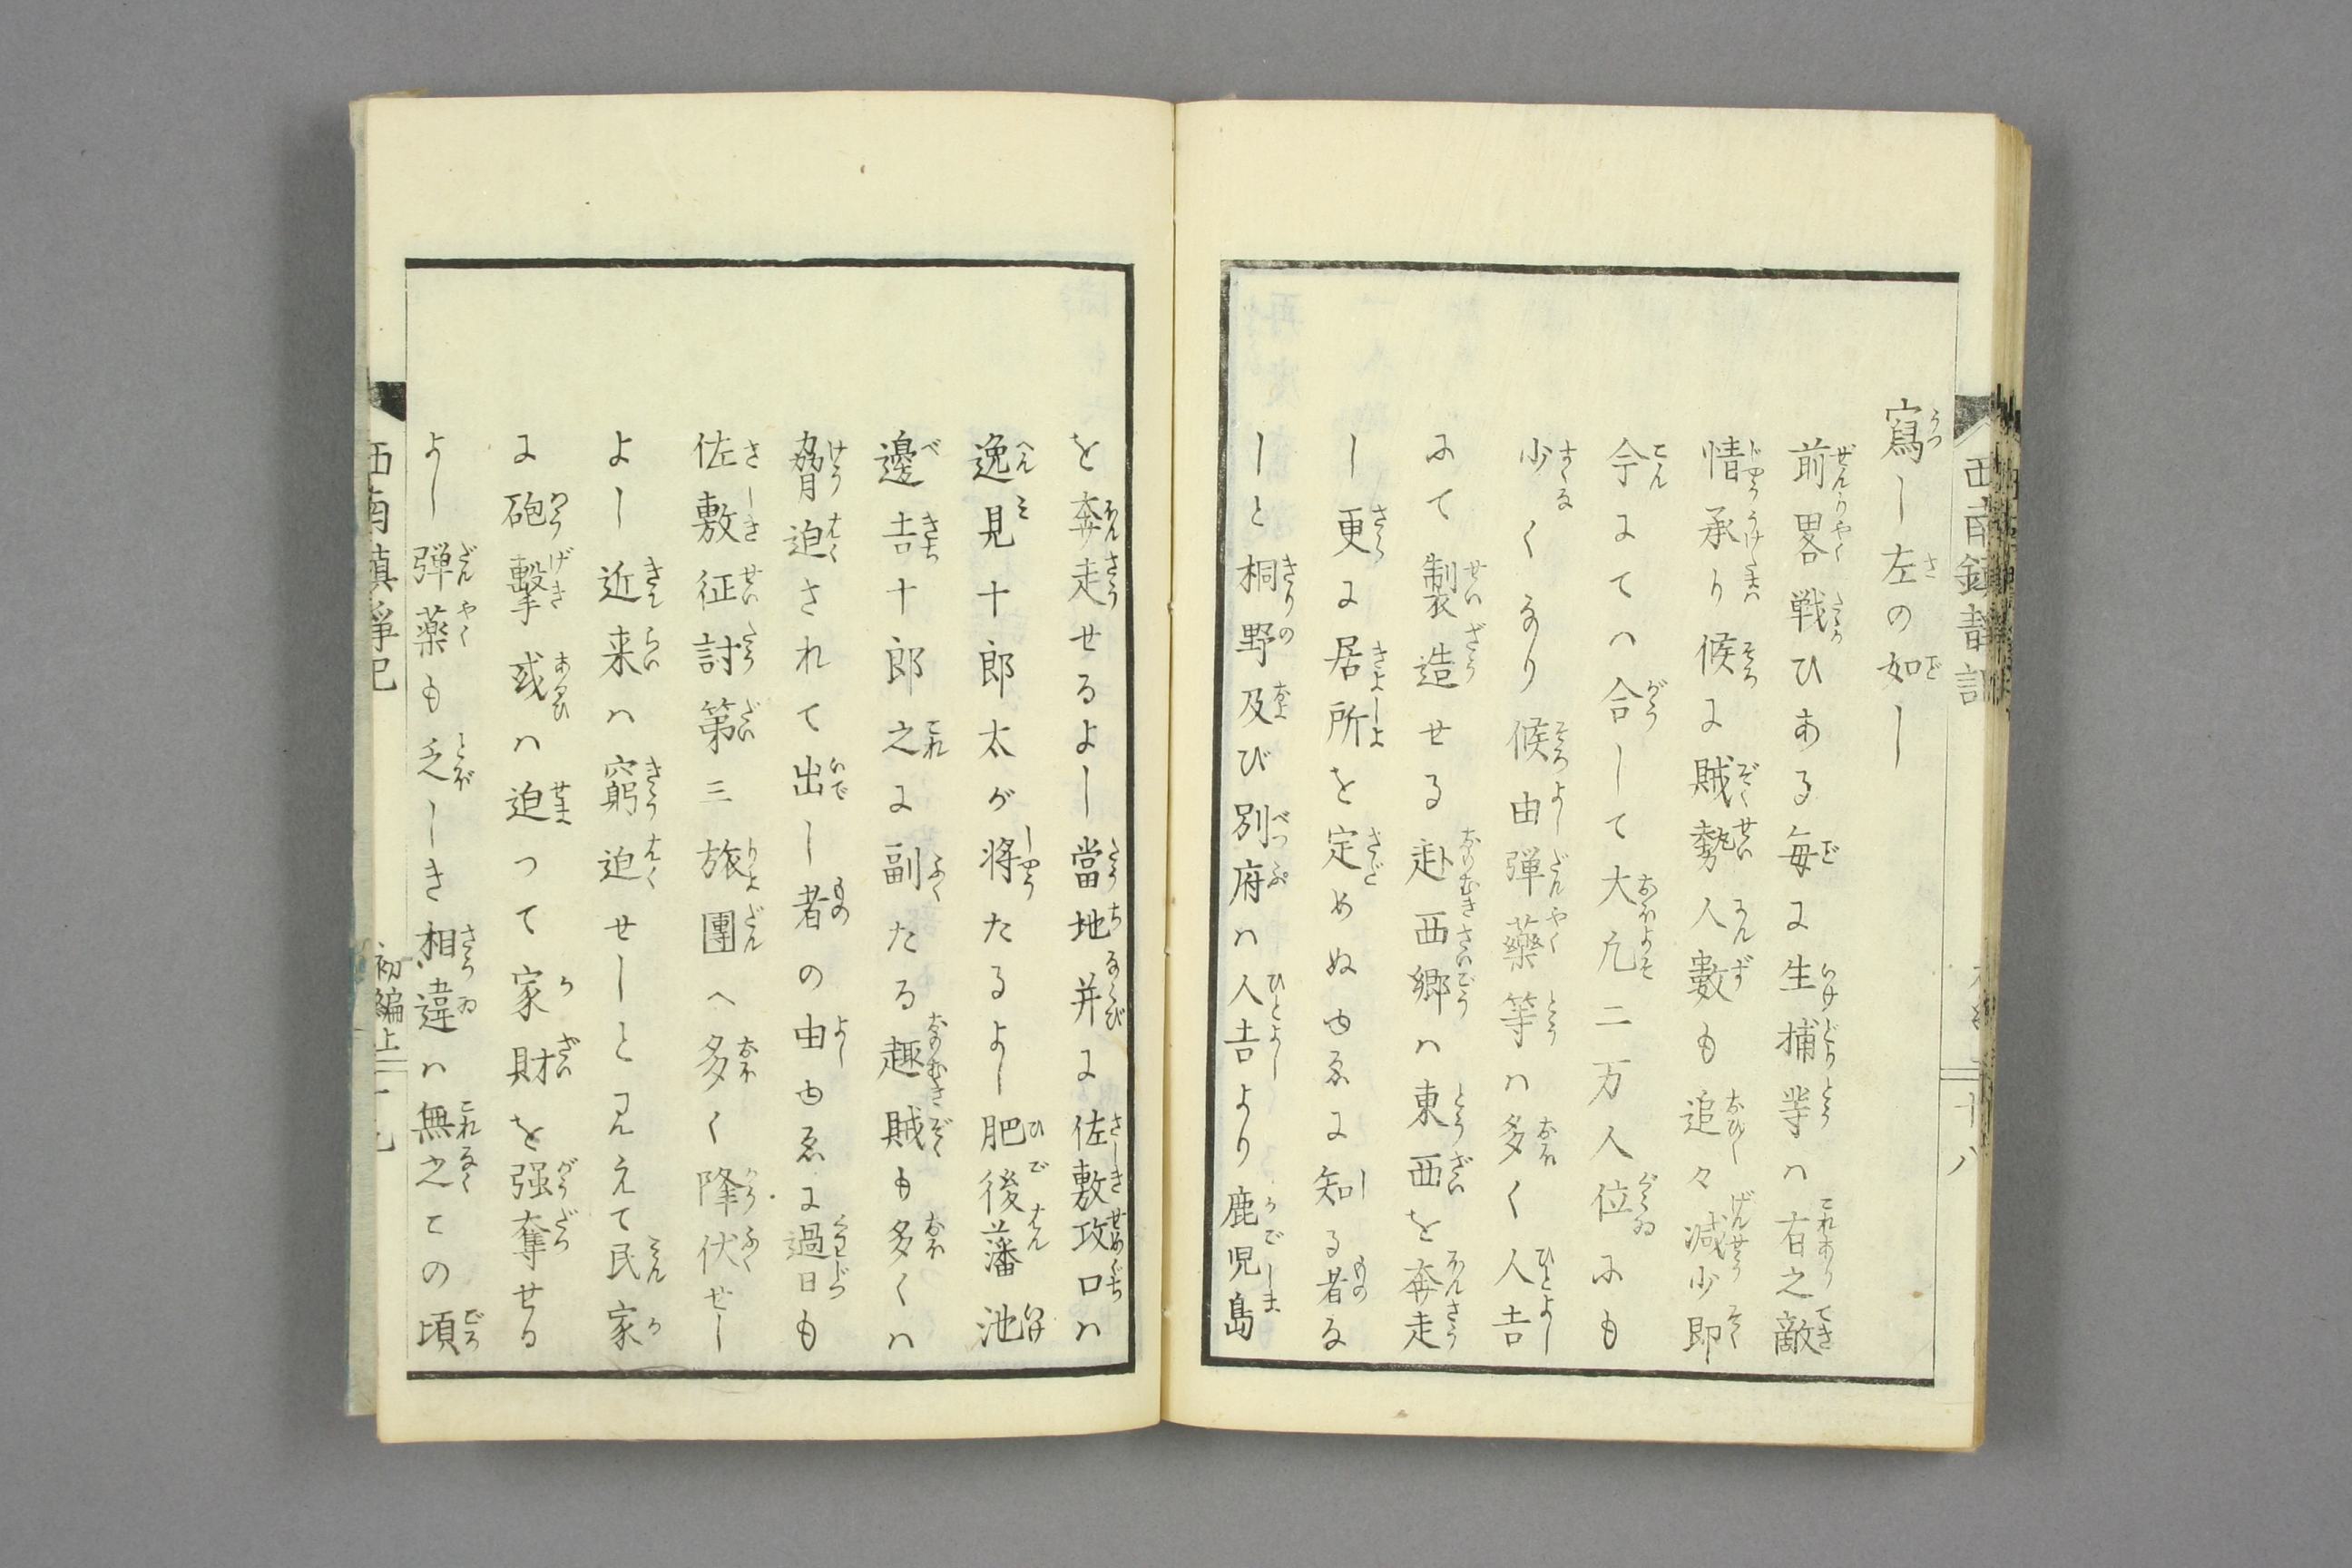 西南鎮静記
十八
寫し左の如し
前畧戦ひある毎に生捕等ハ有之敵
情承り候に賊勢人數も追々減少即
今にてハ合して大凡二万人位にも
少くなり候由弾藥等ハ多く人吉
にて製造せる赴西郷ハ東西を奔走
し更に居所を定めぬゆゑに知る者な
しと桐野及び別府ハ人吉より鹿児島
を奔走せるよし當地并に佐敷攻口ハ
逸見十郎太が将たるよし肥後藩池
邊吉十郎之に副たる趣賊も多くハ
脅迫されて出し者の由ゆゑに過日も
佐敷征討第三旅團へ多く降伏せし
よし近来ハ窮迫せしと見えて民家
に砲擊或ハ迫つて家財を强奪せる
よし弾藥も乏しき相違ハ無之との頃
西南鎮静記
初編上
十九